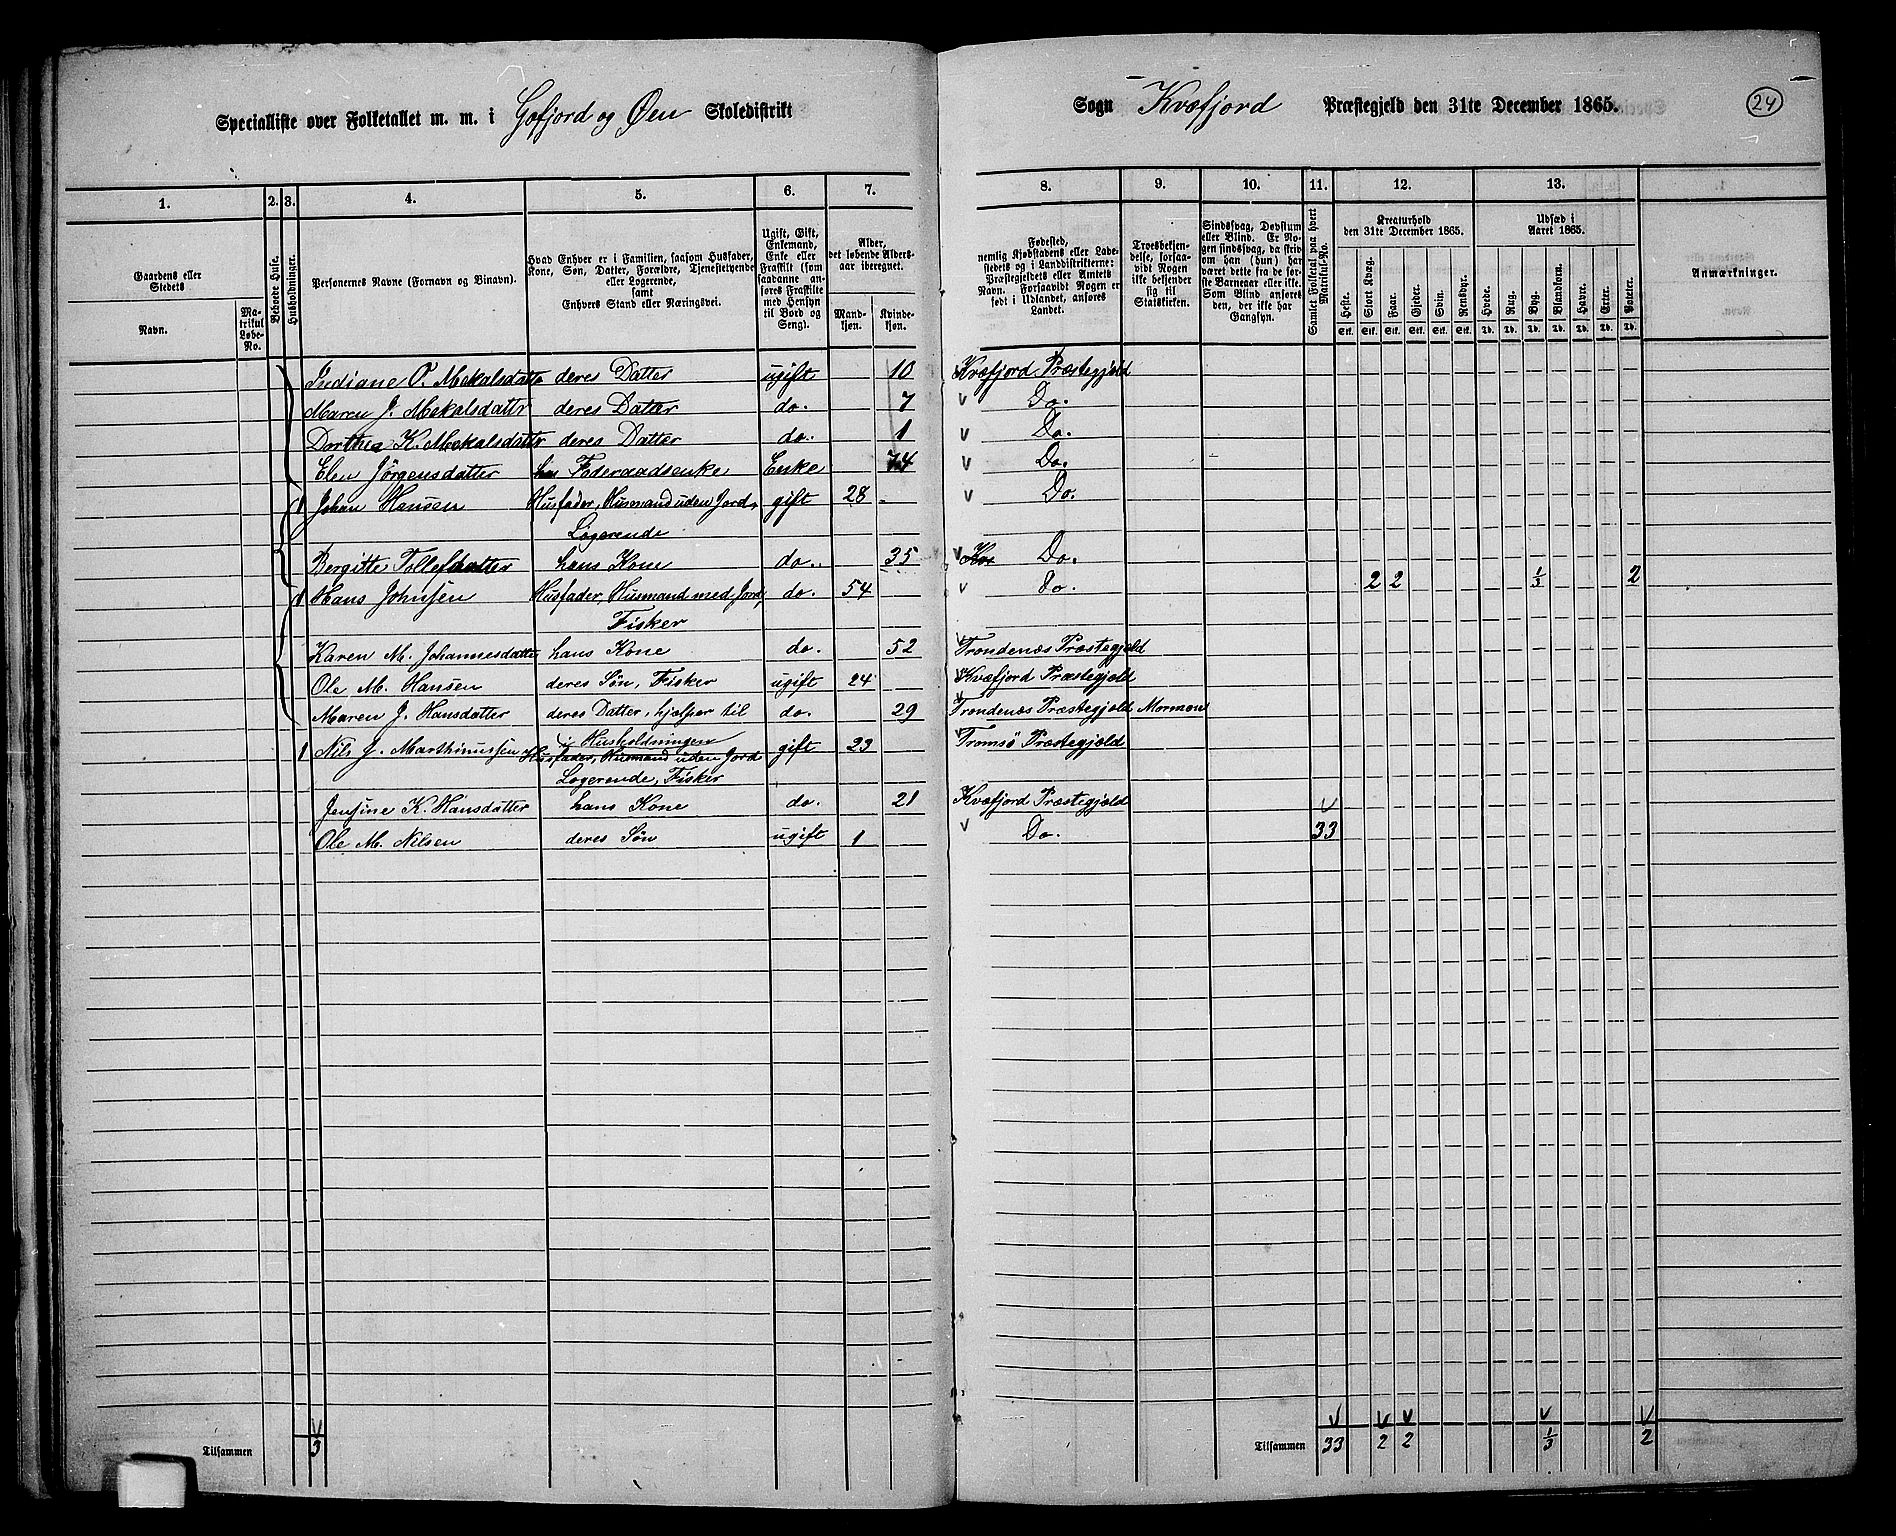 Specialliste over Folketallet m. m. i Gofjord og Øen Skoledistrikt
Sogn Kvæfjord Præstegjeld den 31te December 1865. 24
1. 2. 3. 4. 5. 6. 7. 8. 9. 10. 11. 12. 13.
Gaardens eller Stedets
Navn.
Matrikul Løbe-No.
Beboede Huse.
Husholdninger.
Personernes Navne (Fornavn og Binavn).
Hvad Enhver er i Familien, saasom Husfader, Kone, Søn, Datter, Forældre, Tjenestetyende eller Logerende,
samt
Enhvers Stand eller Næringsvei.
Ugift, Gift, Enkemand, Enke eller Fraskilt (som saadanne anføres Fraskilte med Hensyn til Bord og Seng).
Alder, det løbende Aldersaar iberegnet.
Mandkjøn.
Kvindekjøn.
Fødested, nemlig Kjøbstadens eller Ladestedets og i Landdistrikterne: Præstegjeldets eller Amtets Navn. Forsaavidt Nogen er født i Udlandet, anføres Landet.
Troesbekjendelse, forsaavidt Nogen ikke bekjender sig til Statskirken.
Sindssvag, Døvstum eller Blind. Er Nogen sindssvag, da hvorvidt om han (hun) har været dette fra de første Barneaar eller ikke. Som Blind anføres den, der ikke har Gangsyn.
Samlet Folketal paa hvert Matrikul-No.
Kreaturhold den 31te December 1865.
Heste. Stort Kvæg. Faar. Gjeder. Svin. Rensdyr.
Stk. Stk. Stk. Stk. Stk. Stk.
Udsæd i Aaret 1865.
Hvede. Rug. Byg. Blandkorn. Havre. Erter. Poteter.
Td. Td. Td. Td. Td. Td. Td.
Anmærkninger.
Indiane O. Mekalsdatte deres Datter ugift 10 Kvæfjord Præstegjeld
Maren J. Mekalsdattr deres Datter do. 7 Do.
Dorthea K. Mekalsdattr deres Datter do. 1 Do.
Elen Jörgensdatter Föderaadsenke Enke 74 Do.
1 Johan Hansen Husfader, Husmand uden Jord, gift 28 Do.
Logerende
Bergitte Tollefsdatter hans Kone do. 35 Do.
1 Hans Johnsen Husfader, Husmand med Jord, do. 54 Do. 2 2 1/3 2
Fisker
Karen M. Johannesdatte hans Kone do. 52 Trondenæs Præstegjeld
Ole M. Hansen deres Søn, Fisker ugift 24 Kvæfjord Præstegjeld
Maren J. Hansdatter deres Datter, hjelper til do. 29 Trondenæs Præstegjeld Mormon
i Husholdningen
1 Nils J. Marthinussen Husfader, Husmand uden Jord gift 23 Tromsö Præstegjeld
Logerende, Fisker
Jensine K. Hansdatter hans Kone do. 21 Kvæfjord Præstegjeld
Ole M. Nilsen deres Søn ugift 1 Do. 33
Tilsammen 3 Tilsammen 33 2 2 1/3 2